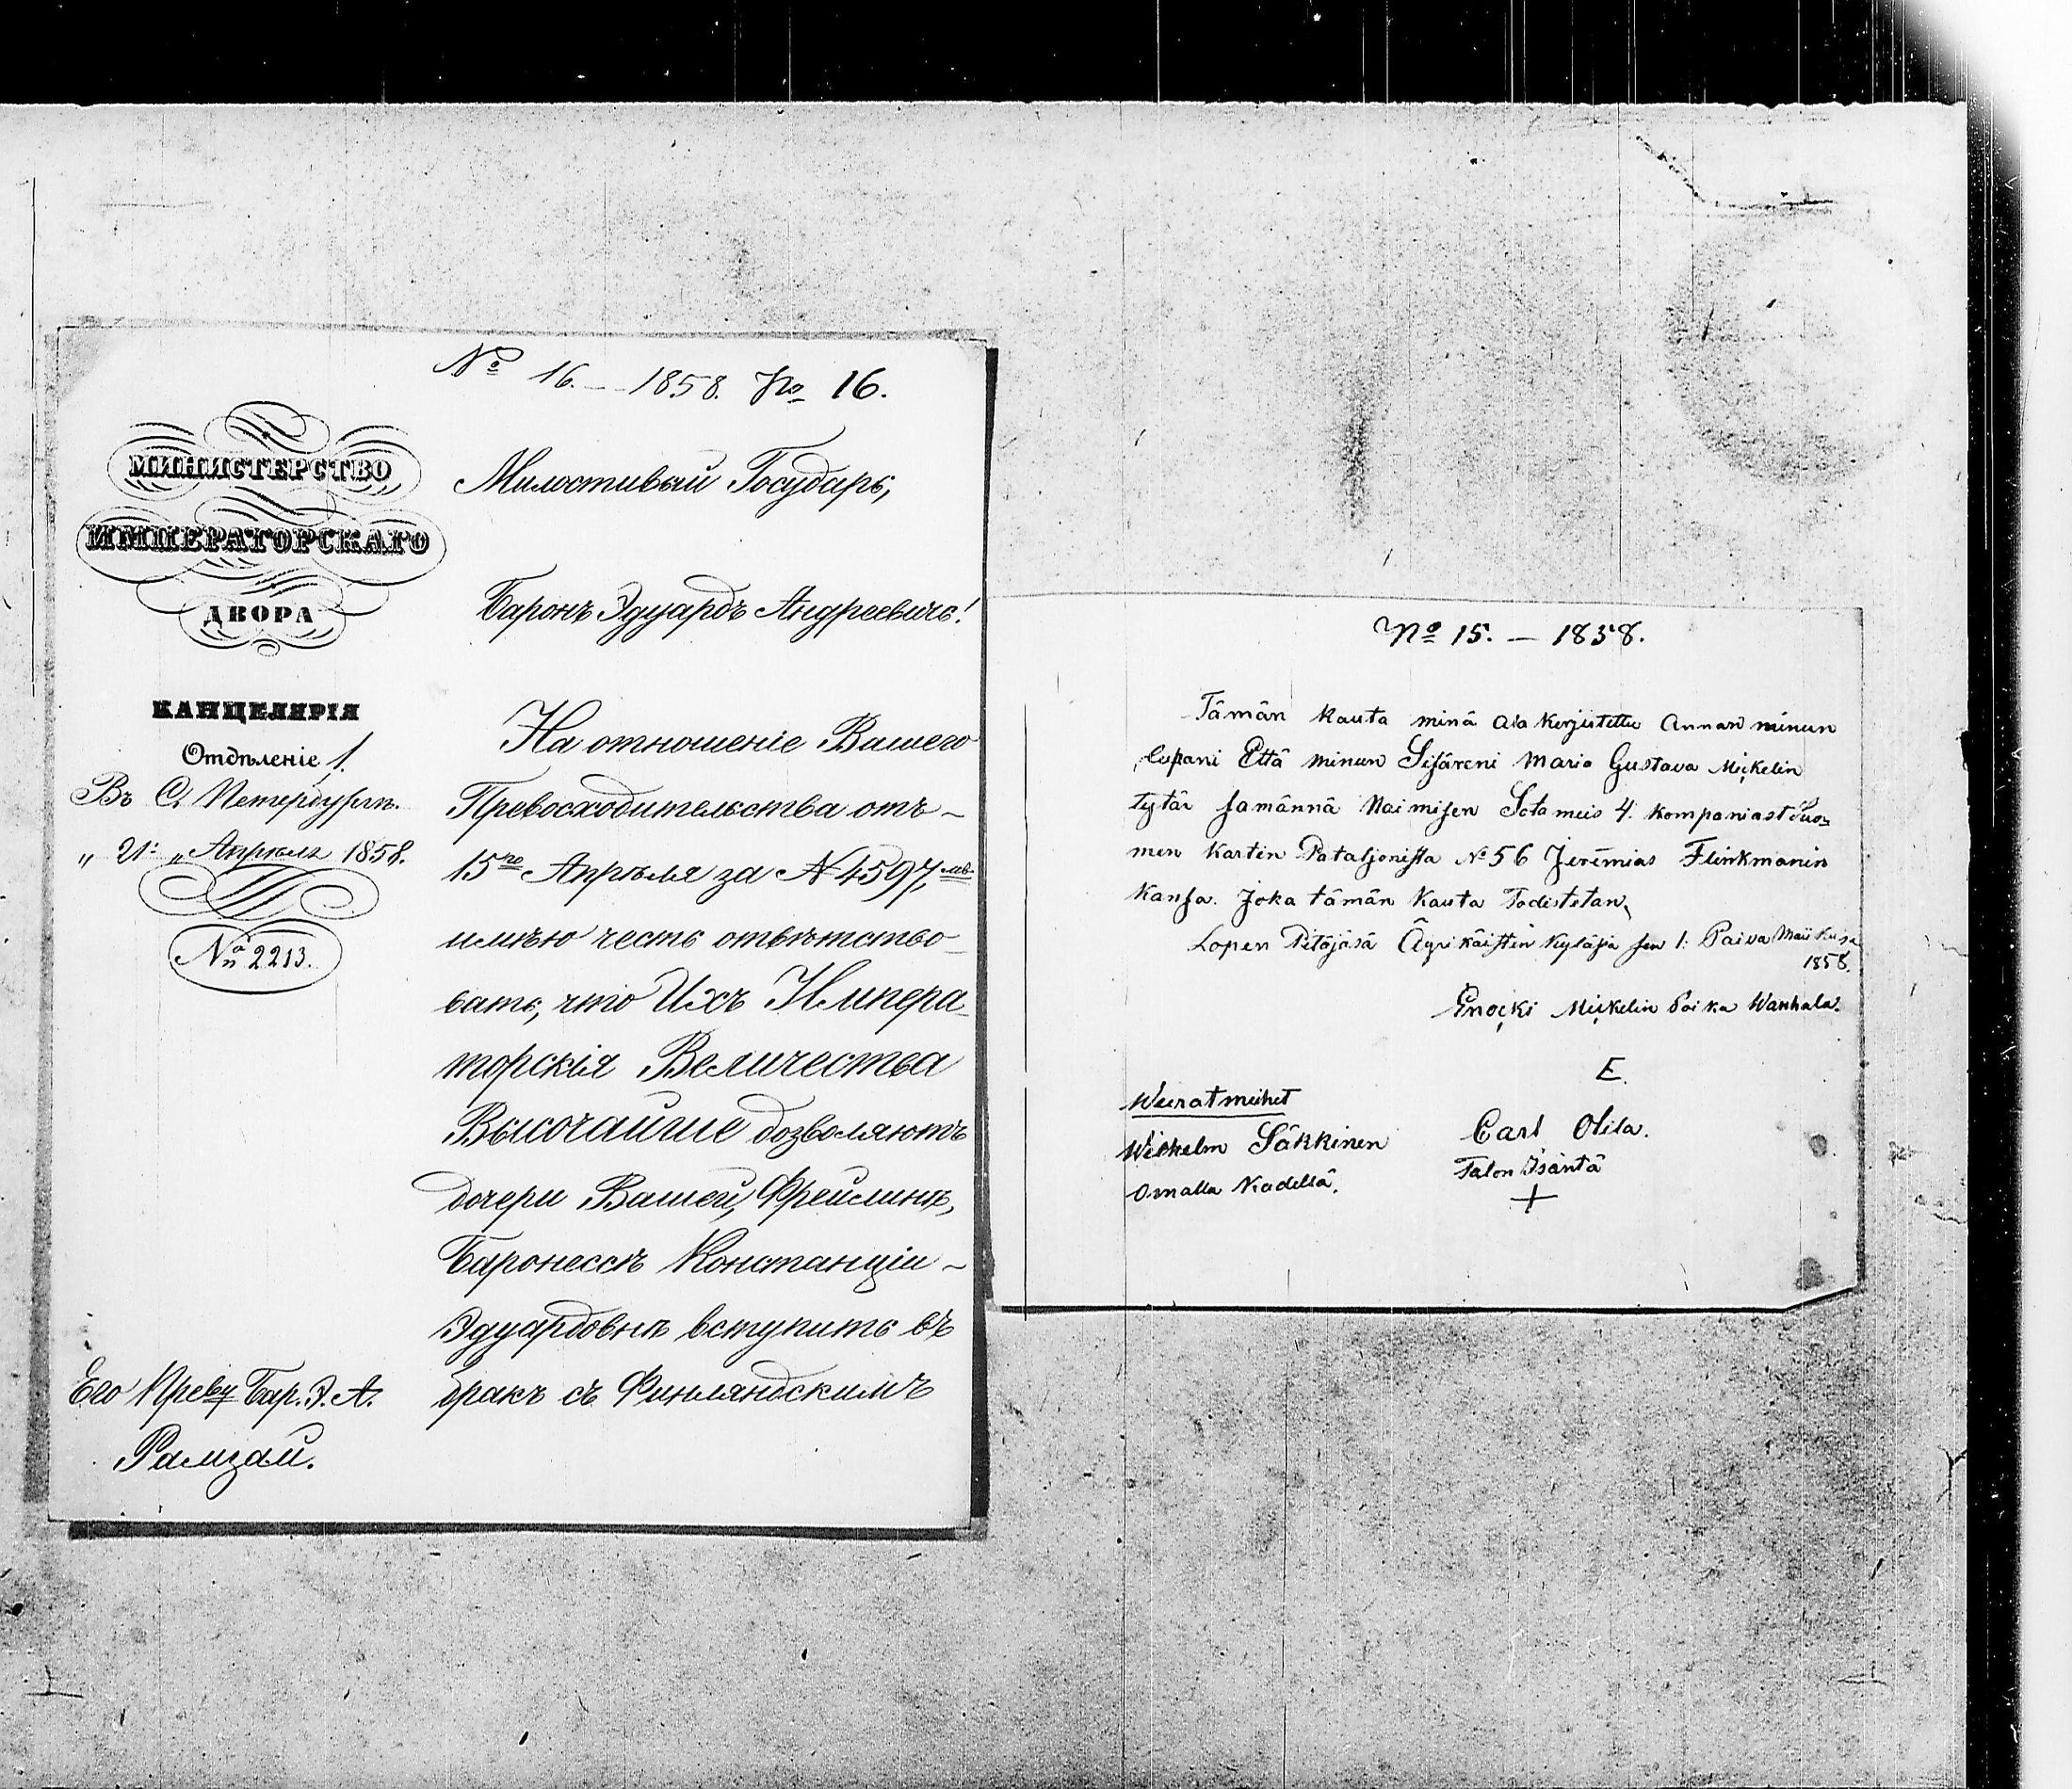 № 16. — 1858. No 16.
МИНИСТЕРСТВО
ИМПЕРАТОРСКАГО
ДВОРА
КАНЦЕЛЯРІЯ
Отдѣленіе 1.
Въ С. Петербургѣ.
„ 21: „ Апрѣля 1858.
№ 2213.
Его Прев-ву Бар. Э. А.
Рамзай.
Милостивый Государь,
Баронъ Эдуардъ Андреевичь!
На отношеніе Вашего
Превосходительства отъ
15го Апрѣля за № 4597,
имѣю честь отвѣтство-
вать, что Ихъ Импера-
торскія Величества
Высочайше дозволяютъ
дочери Вашей, Фрейлинѣ,
Баронессѣ Констанціи
Эдуардовнѣ вступить въ
бракъ съ Финляндскимъ
№ 15. — 1858.
Tämän Kauta minä ala Kirjutettu Annan minun
lupani Että minun Sisäreni Maria Gustava Mickelin
tytär saa männä Naimisen Sotameis 4. Kompaniast Suo-
men Kartin Pataljonista № 56 Jeremias Flinkmanin
Kansa. Joka tämän Kauta Todistetan,
Lopen Pitäjäsä Kyläsä sen 1: Paiva Maii Kusa
1858.
Enocki Mickelin Poika Wanhala.
E.
Wieratmiehet
Wilhelm Säkkinen
Omalla Kädellä.
Carl Olila.
Talon Isäntä
+